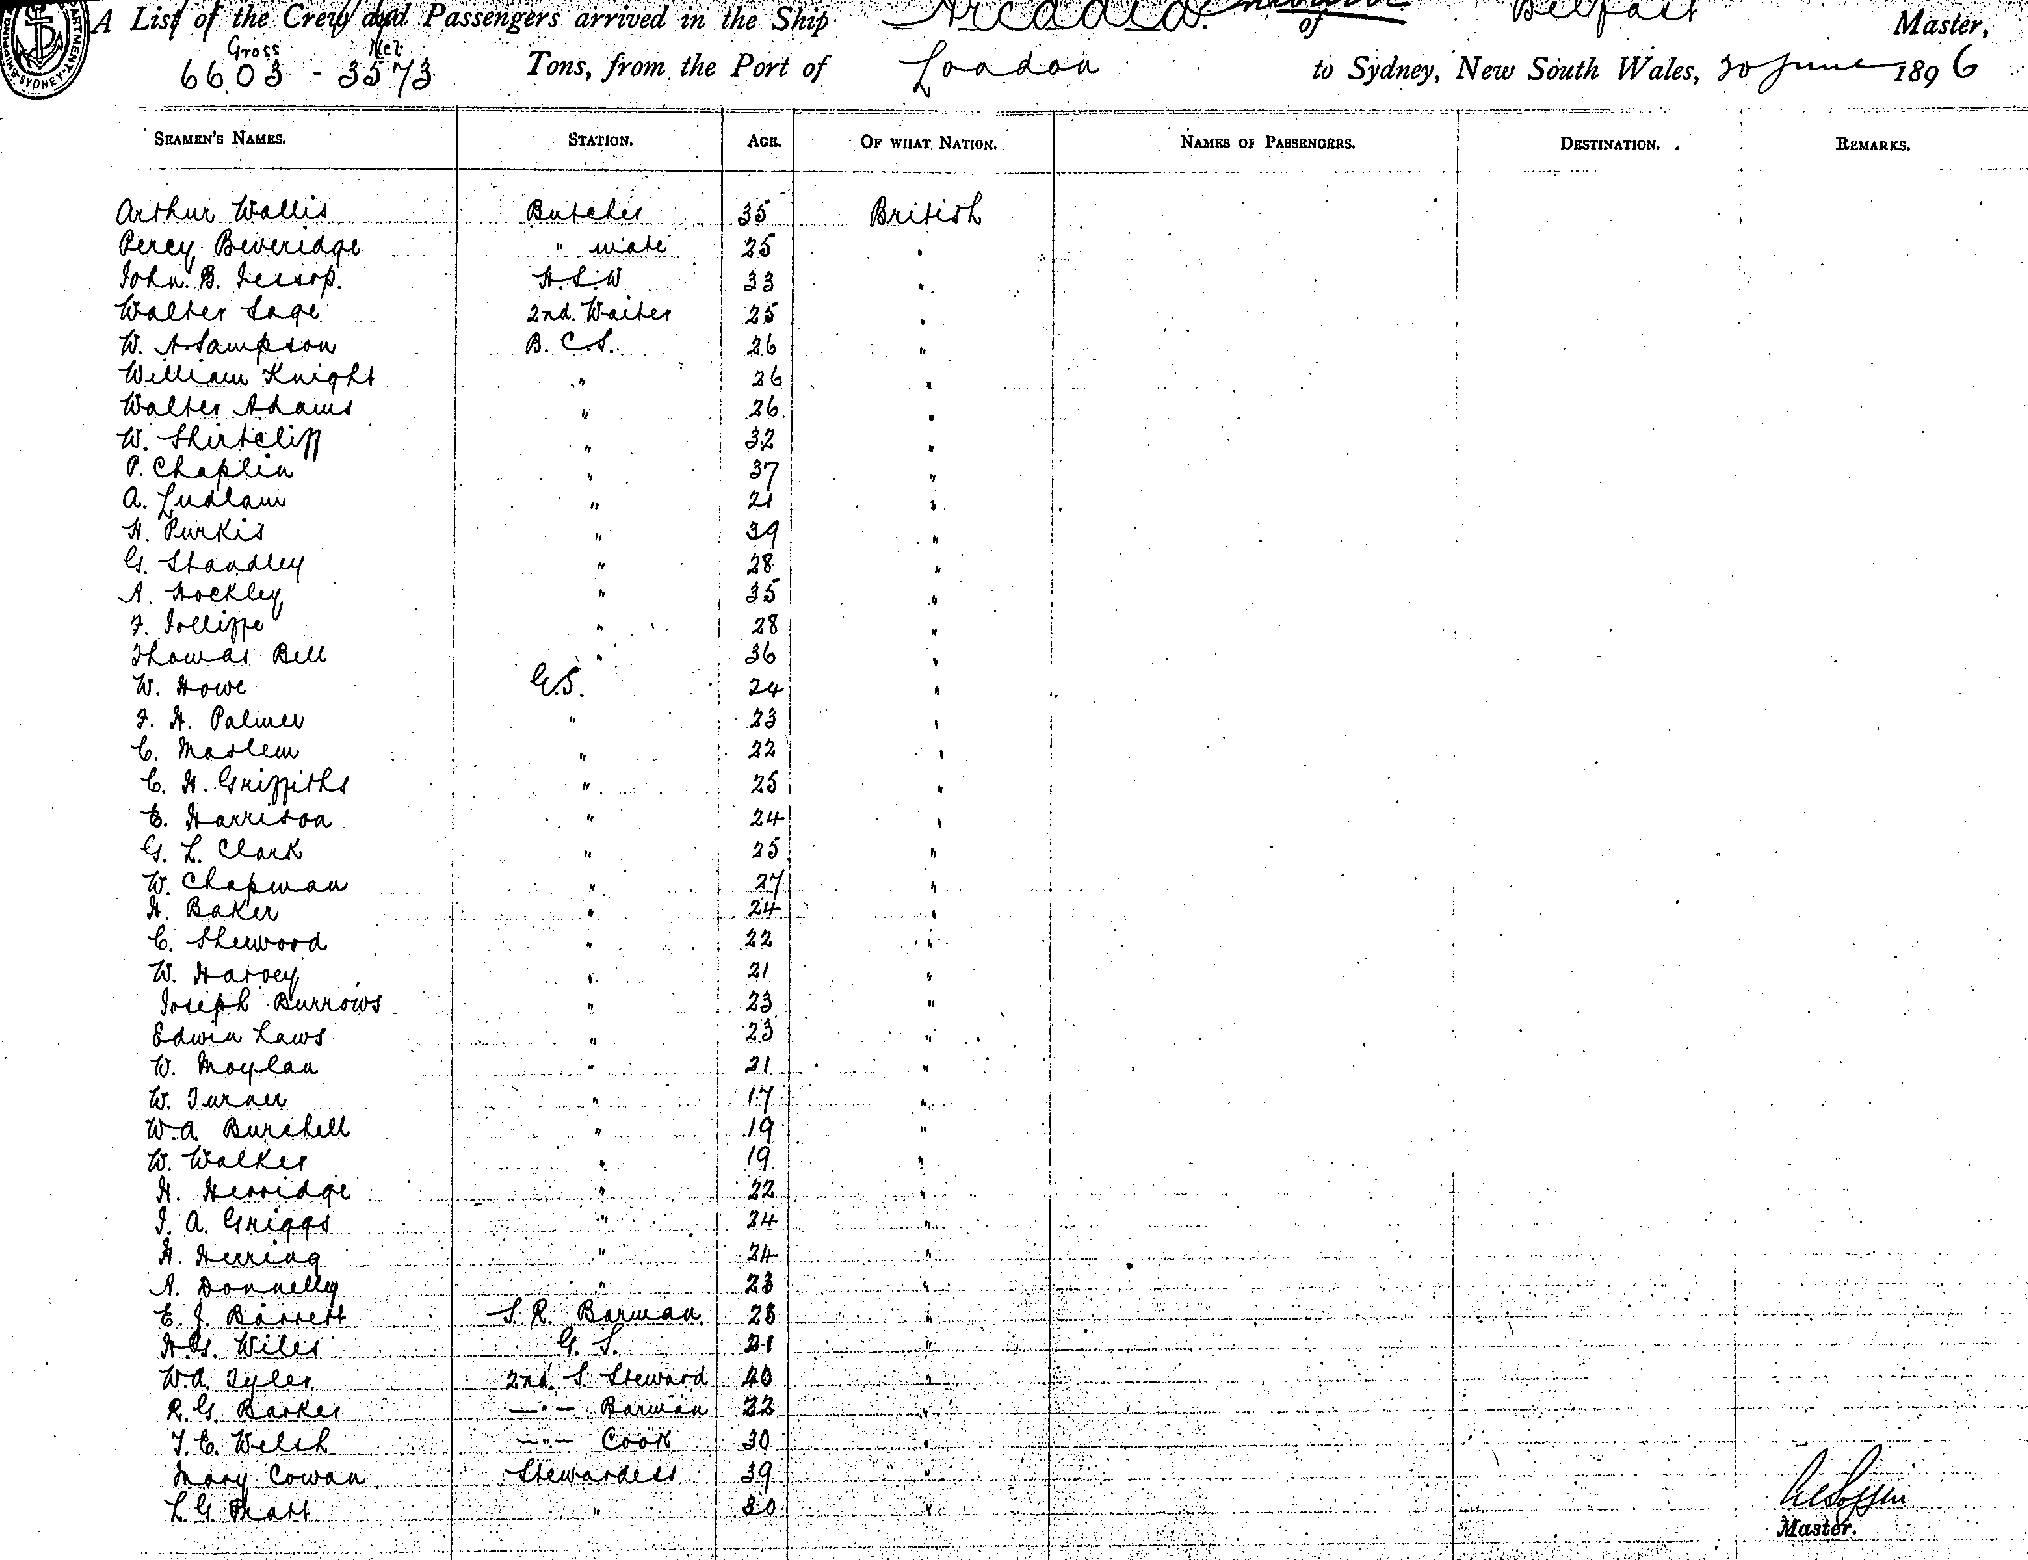 A List of the Crew and Passengers arrived in the Ship Arcadia of Belfast Master,
Gross Net
6603 - 3573 Tons, from the Port of London to Sydney, New South Wales, 30 June 1896
SEAMEN'S NAMES. STATION. AGE. OF WHAT NATION. NAMES OF PASSENGERS. DESTINATION. REMARKS.
Arthur Wallis Butcher 35 British
Percy Beveridge " mate 25 "
John B. Jessop. H.S.W 33 "
Walter Sage 2nd Waiter 25 "
W. A Sampson B. C S. 26 "
William Knight " 26 "
Walter Adams " 26 "
W. Shirtcliff " 32 "
P. Chaplin " 37 "
A. Ludlam " 21 "
H. Purkis " 39 "
G. Standley " 28 "
A. Hockley " 35 "
F. Jolliffe " 28 "
Thomas Bell " 36 "
W. Howe G.S. 24 "
F. H. Palmer " 23 "
C. Maslem " 22 "
C. H. Griffiths " 25 "
E. Harrison " 24 "
G. L. Clark " 25 "
W. Chapman " 27 "
H. Baker " 24 "
C. Sherwood " 22 "
W. Harvey " 21 "
Joseph Burrows " 23 "
Edwin Laws " 23 "
W. Moylan " 21 "
W. Turner " 17 "
W.A Burchell " 19 "
W. Walker " 19 "
H. Herridge " 22 "
J. A. Griggs " 24 "
H. Herring " 24 "
A. Donnelly " 23 "
E. J. Barrett S. R. Barman 28 "
H.G. Wiles G. S. 21 "
W.A. Tyler 2nd S Steward 40 "
R. G. Barker —"— Barman 22 "
T. C. Welsh —"— Cook 30 "
Mary Cowan Stewardess 39 "
L G Pratt " 30 "
Master.